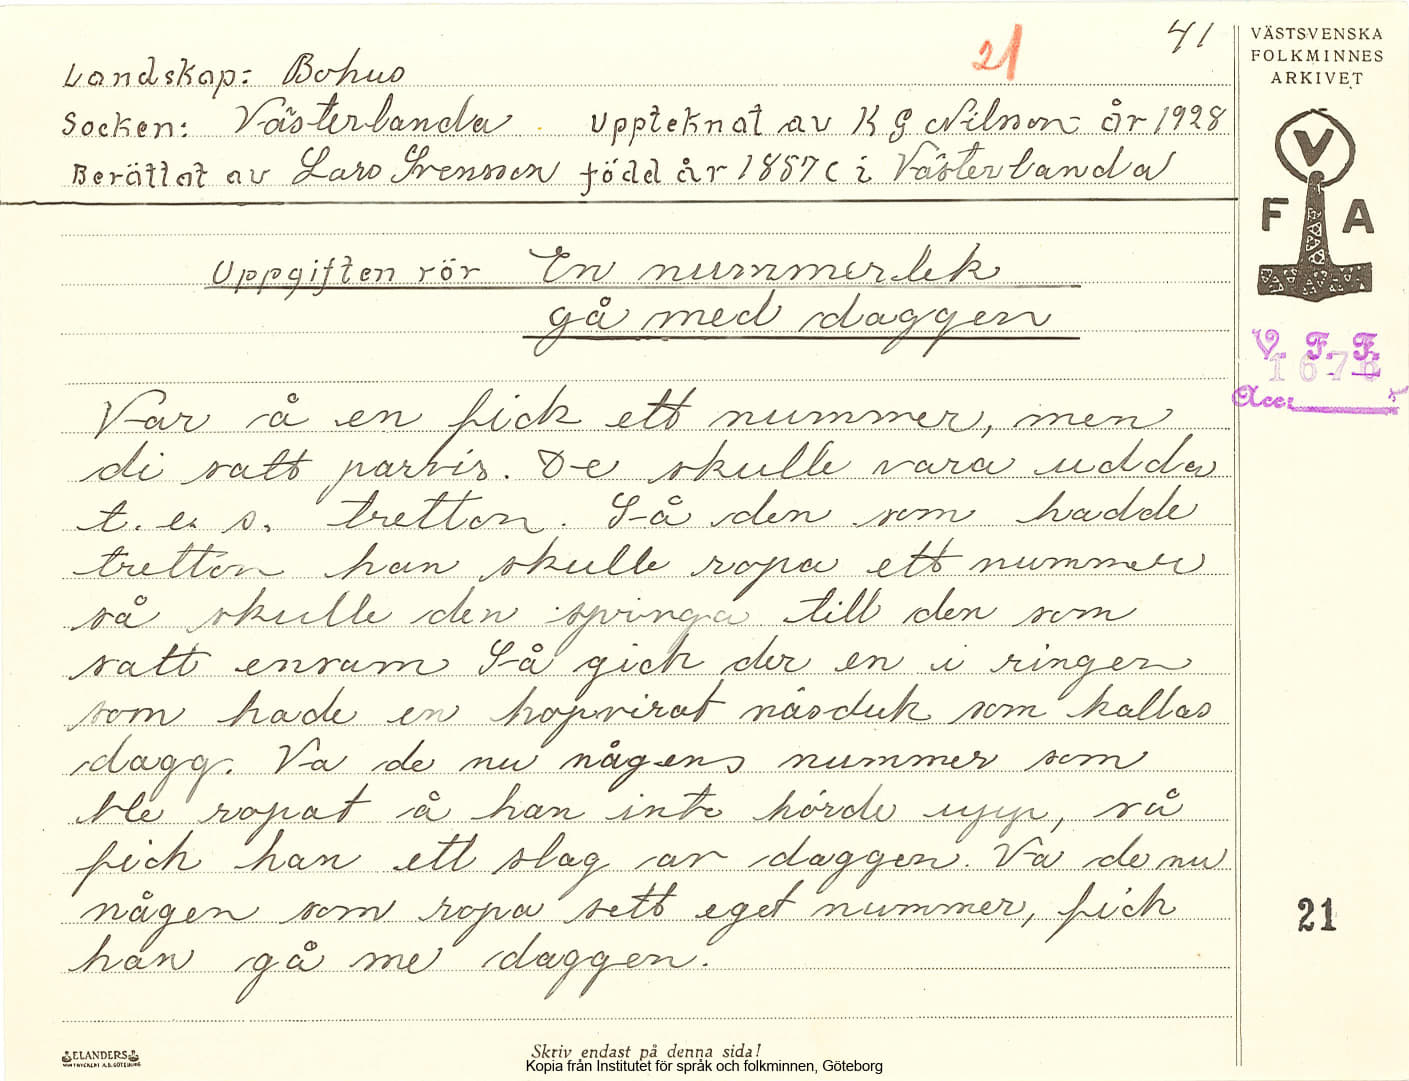 21
41
VÄSTSVENSKA
FOLKMINNES
ARKIVET
Landskap: Bohus
Socken: Västerlanda Upptecknat av K G Nilsson år 1928
Berättat av Lars Svensson född år 1857 i Västerlanda
V
F A
Uppgiften rör En nummerlek
gå med daggen
V. F. F.
1676
Acc:
Var å en fick ett nummer, men
di satt parvis. De skulle vara udda
t. ex. s. tretton. Så den som hadde
tretton han skulle ropa ett nummer
så skulle den springa till den som
satt ensam Så gick der en i ringen
som hade en hopvirat näsduk som kallas
dagg. Va de nu någens nummer som
ble ropat å han inte hörde upp, så
fick han ett slag av daggen. Va de nu
någen som ropa sett eget nummer, fick
han gå me daggen.
21
ELANDERS
Skriv endast på denna sida!
Kopia från Institutet för språk och folkminnen, Göteborg